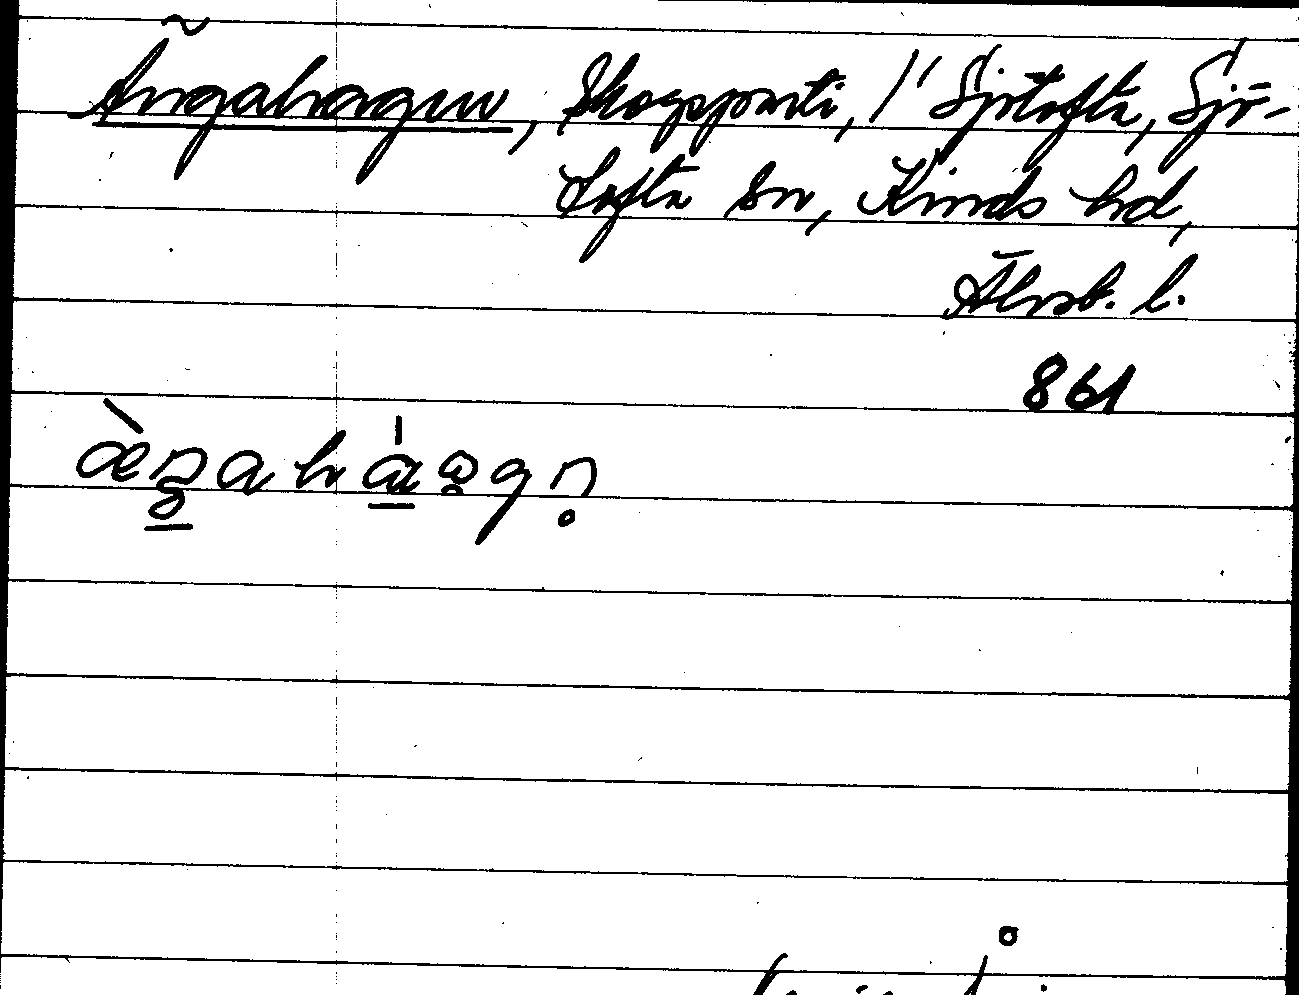 Ängahagen, Skogsparti, 1/1 Sjötofta, Sjö-
tofta sn, Kinds hd,
Älvsb. l.
861